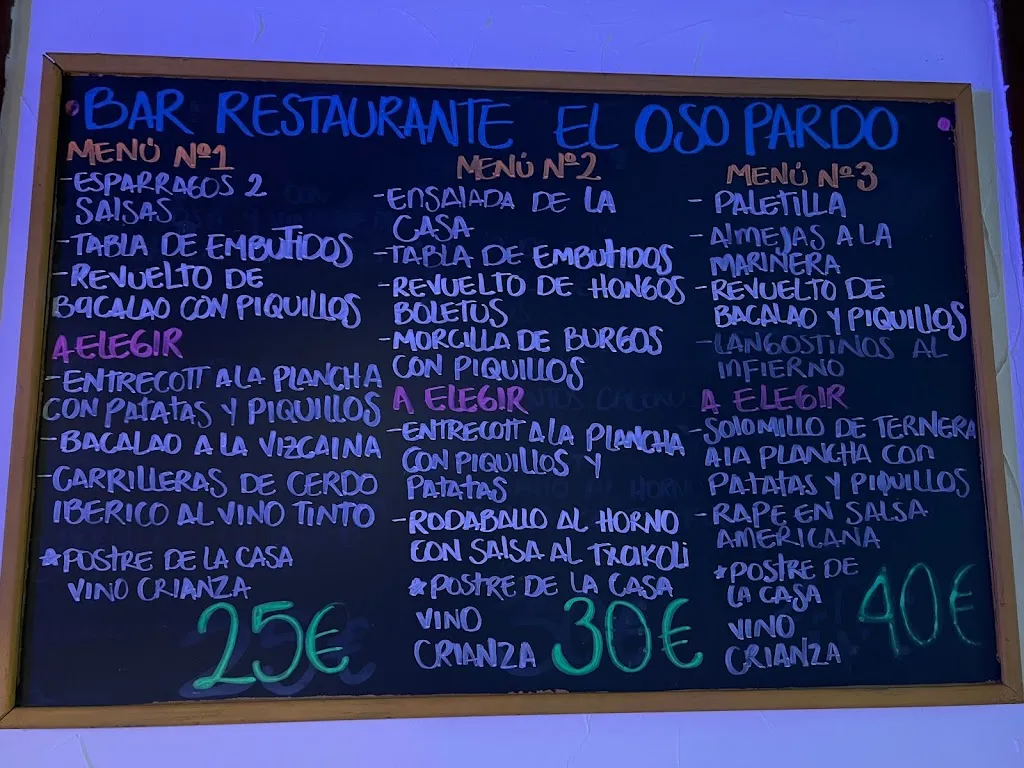 BAR RESTAURANTE EL OSO PARDO
MENÚ Nº1
-ESPARRAGOS 2
SALSAS
-TABLA DE EMBUTIDOS
-REVUELTO DE
BACALAO CON PIQUILLOS
A ELEGIR
-ENTRECOTT A LA PLANCHA
CON PATATAS Y PIQUILLOS
-BACALAO A LA VIZCAINA
-CARRILLERAS DE CERDO
IBERICO AL VINO TINTO
*POSTRE DE LA CASA
VINO CRIANZA
25€
MENÚ Nº2
-ENSALADA DE LA
CASA
-TABLA DE EMBUTIDOS
-REVUELTO DE HONGOS
BOLETUS
-MORCILLA DE BURGOS
CON PIQUILLOS
A ELEGIR
-ENTRECOTT A LA PLANCHA
CON PIQUILLOS Y
PATATAS
-RODABALLO AL HORNO
CON SALSA AL TXAKOLI
*POSTRE DE LA CASA
VINO
CRIANZA
30€
MENÚ Nº3
- PALETILLA
- ALMEJAS A LA
MARIÑERA
-REVUELTO DE
BACALAO Y PIQUILLOS
-LANGOSTINOS AL
INFIERNO
A ELEGIR
-SOLOMILLO DE TERNERA
A LA PLANCHA CON
PATATAS Y PIQUILLOS
-RAPE EN SALSA
AMERICANA
*POSTRE DE
LA CASA
VINO
CRIANZA
40€